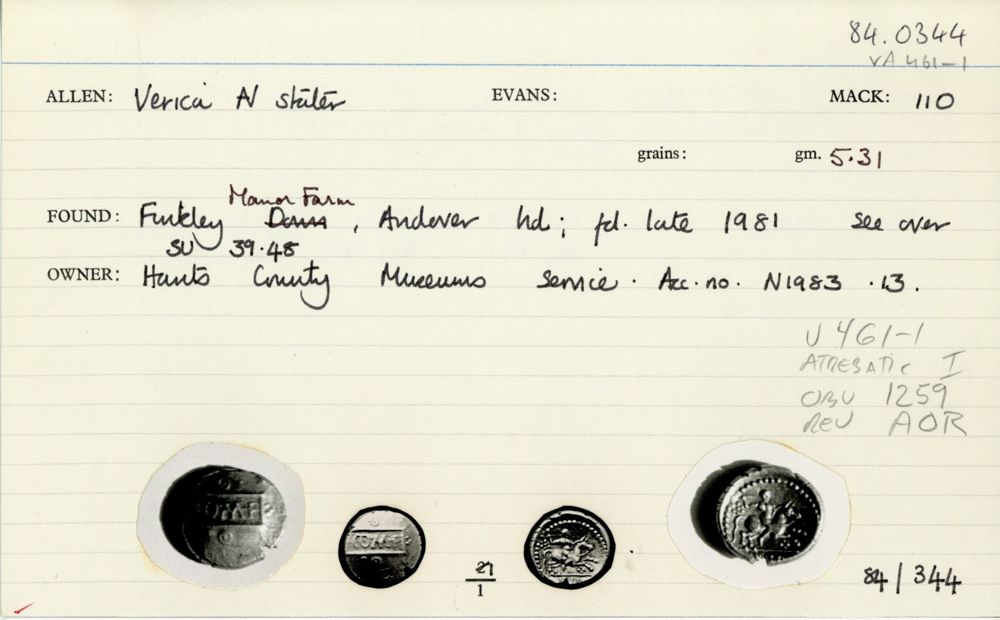 84.0344
VA 461-1
ALLEN: Verica N stater EVANS: MACK: 110
grains: gm. 5.31
Manor Farm
FOUND: Finkley Down, Andover hd; fd. late 1981 see over
SU 39.48
OWNER: Hants County Museums Service. Acc. no. N1983 .13.
V 461-1
ATREBATIC I
OBV 1259
REV AOR
COMMF
COMMF
21
1
84/344